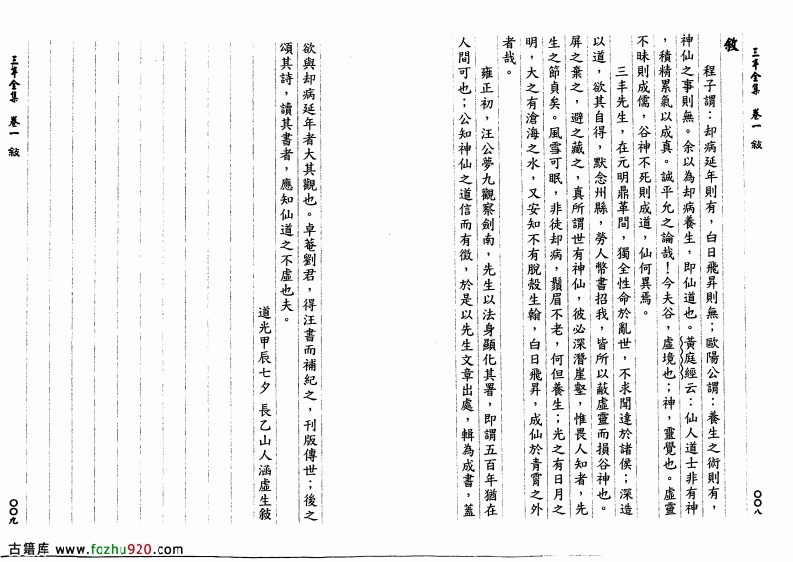 三丰全集 卷一 敘
〇〇八
敘
程子謂：却病延年則有，白日飛昇則無；歐陽公謂：養生之術則有，
神仙之事則無。余以為却病養生，即仙道也。黃庭經云：仙人道士非有神
，積精累氣以成真。誠平允之論哉！今夫谷，虛境也；神，靈覺也。虛靈
不昧則成儒，谷神不死則成道，仙何異焉。
三丰先生，在元明鼎革間，獨全性命於亂世，不求聞達於諸侯；深造
以道，欲其自得，默念州縣，勞人幣書招我，皆所以蔽虛靈而損谷神也。
屏之棄之，避之藏之，真所謂世有神仙，彼必深潛崖壑，惟畏人知者，先
生之節貞矣。風雪可眠，非徒却病，鬚眉不老，何但養生；光之有日月之
明，大之有滄海之水，又安知不有脫殼生翰，白日飛昇，成仙於青霄之外
者哉。
雍正初，汪公夢九觀察劍南，先生以法身顯化其署，即謂五百年猶在
人間可也；公知神仙之道信而有徵，於是以先生文章出處，輯為成書，蓋
欲與却病延年者大其觀也。卓菴劉君，得汪書而補紀之，刊版傳世；後之
頌其詩，讀其書者，應知仙道之不虛也夫。
道光甲辰七夕 長乙山人涵虛生敘
三丰全集 卷一 敘
〇〇九
古籍库 www.fozhu920.com